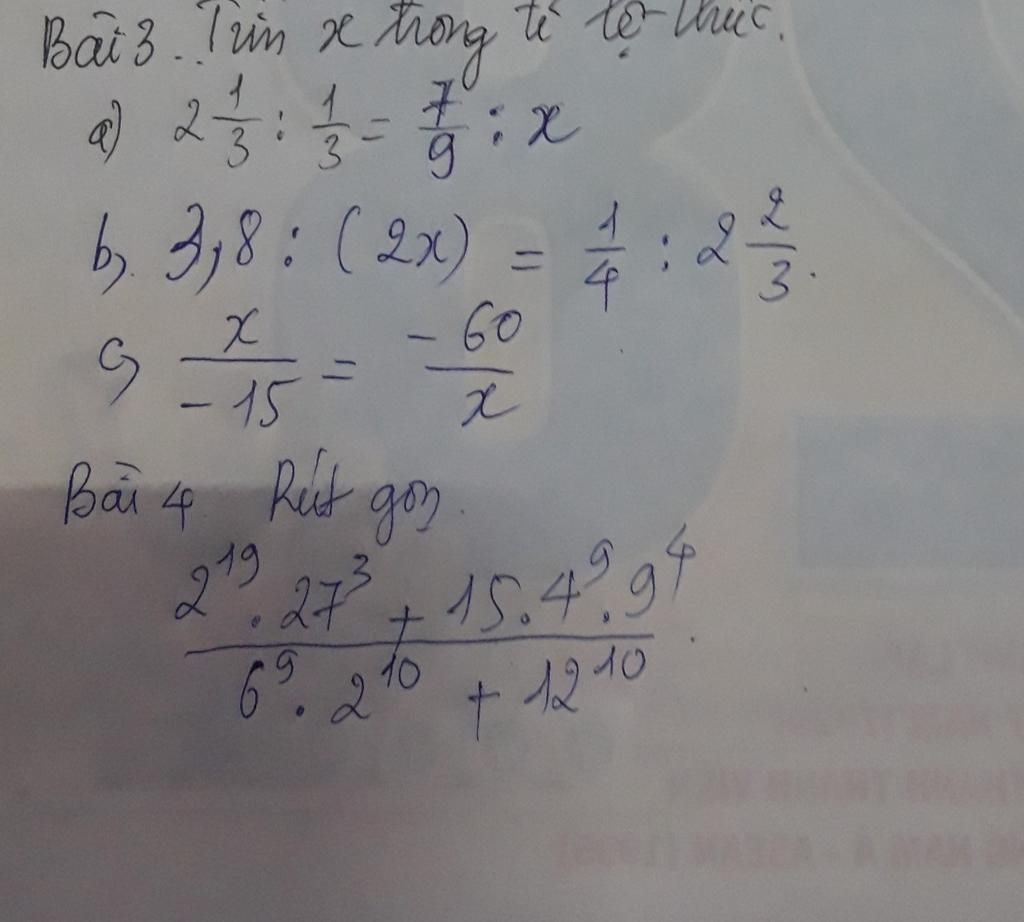 Bài 3. Tìm x trong tỉ lệ thức.
a) 2 1/3 : 1/3 = 7/9 : x
b, 3,8 : (2x) = 1/4 : 2 2/3.
c, x/-15 = -60/x
Bài 4 Rút gọn.
2^19 . 27^3 + 15 . 4^9 . 9^4
6^9 . 2^10 + 12^10
THÀNH VIÊN
NAM Á - ASEAN (1995)